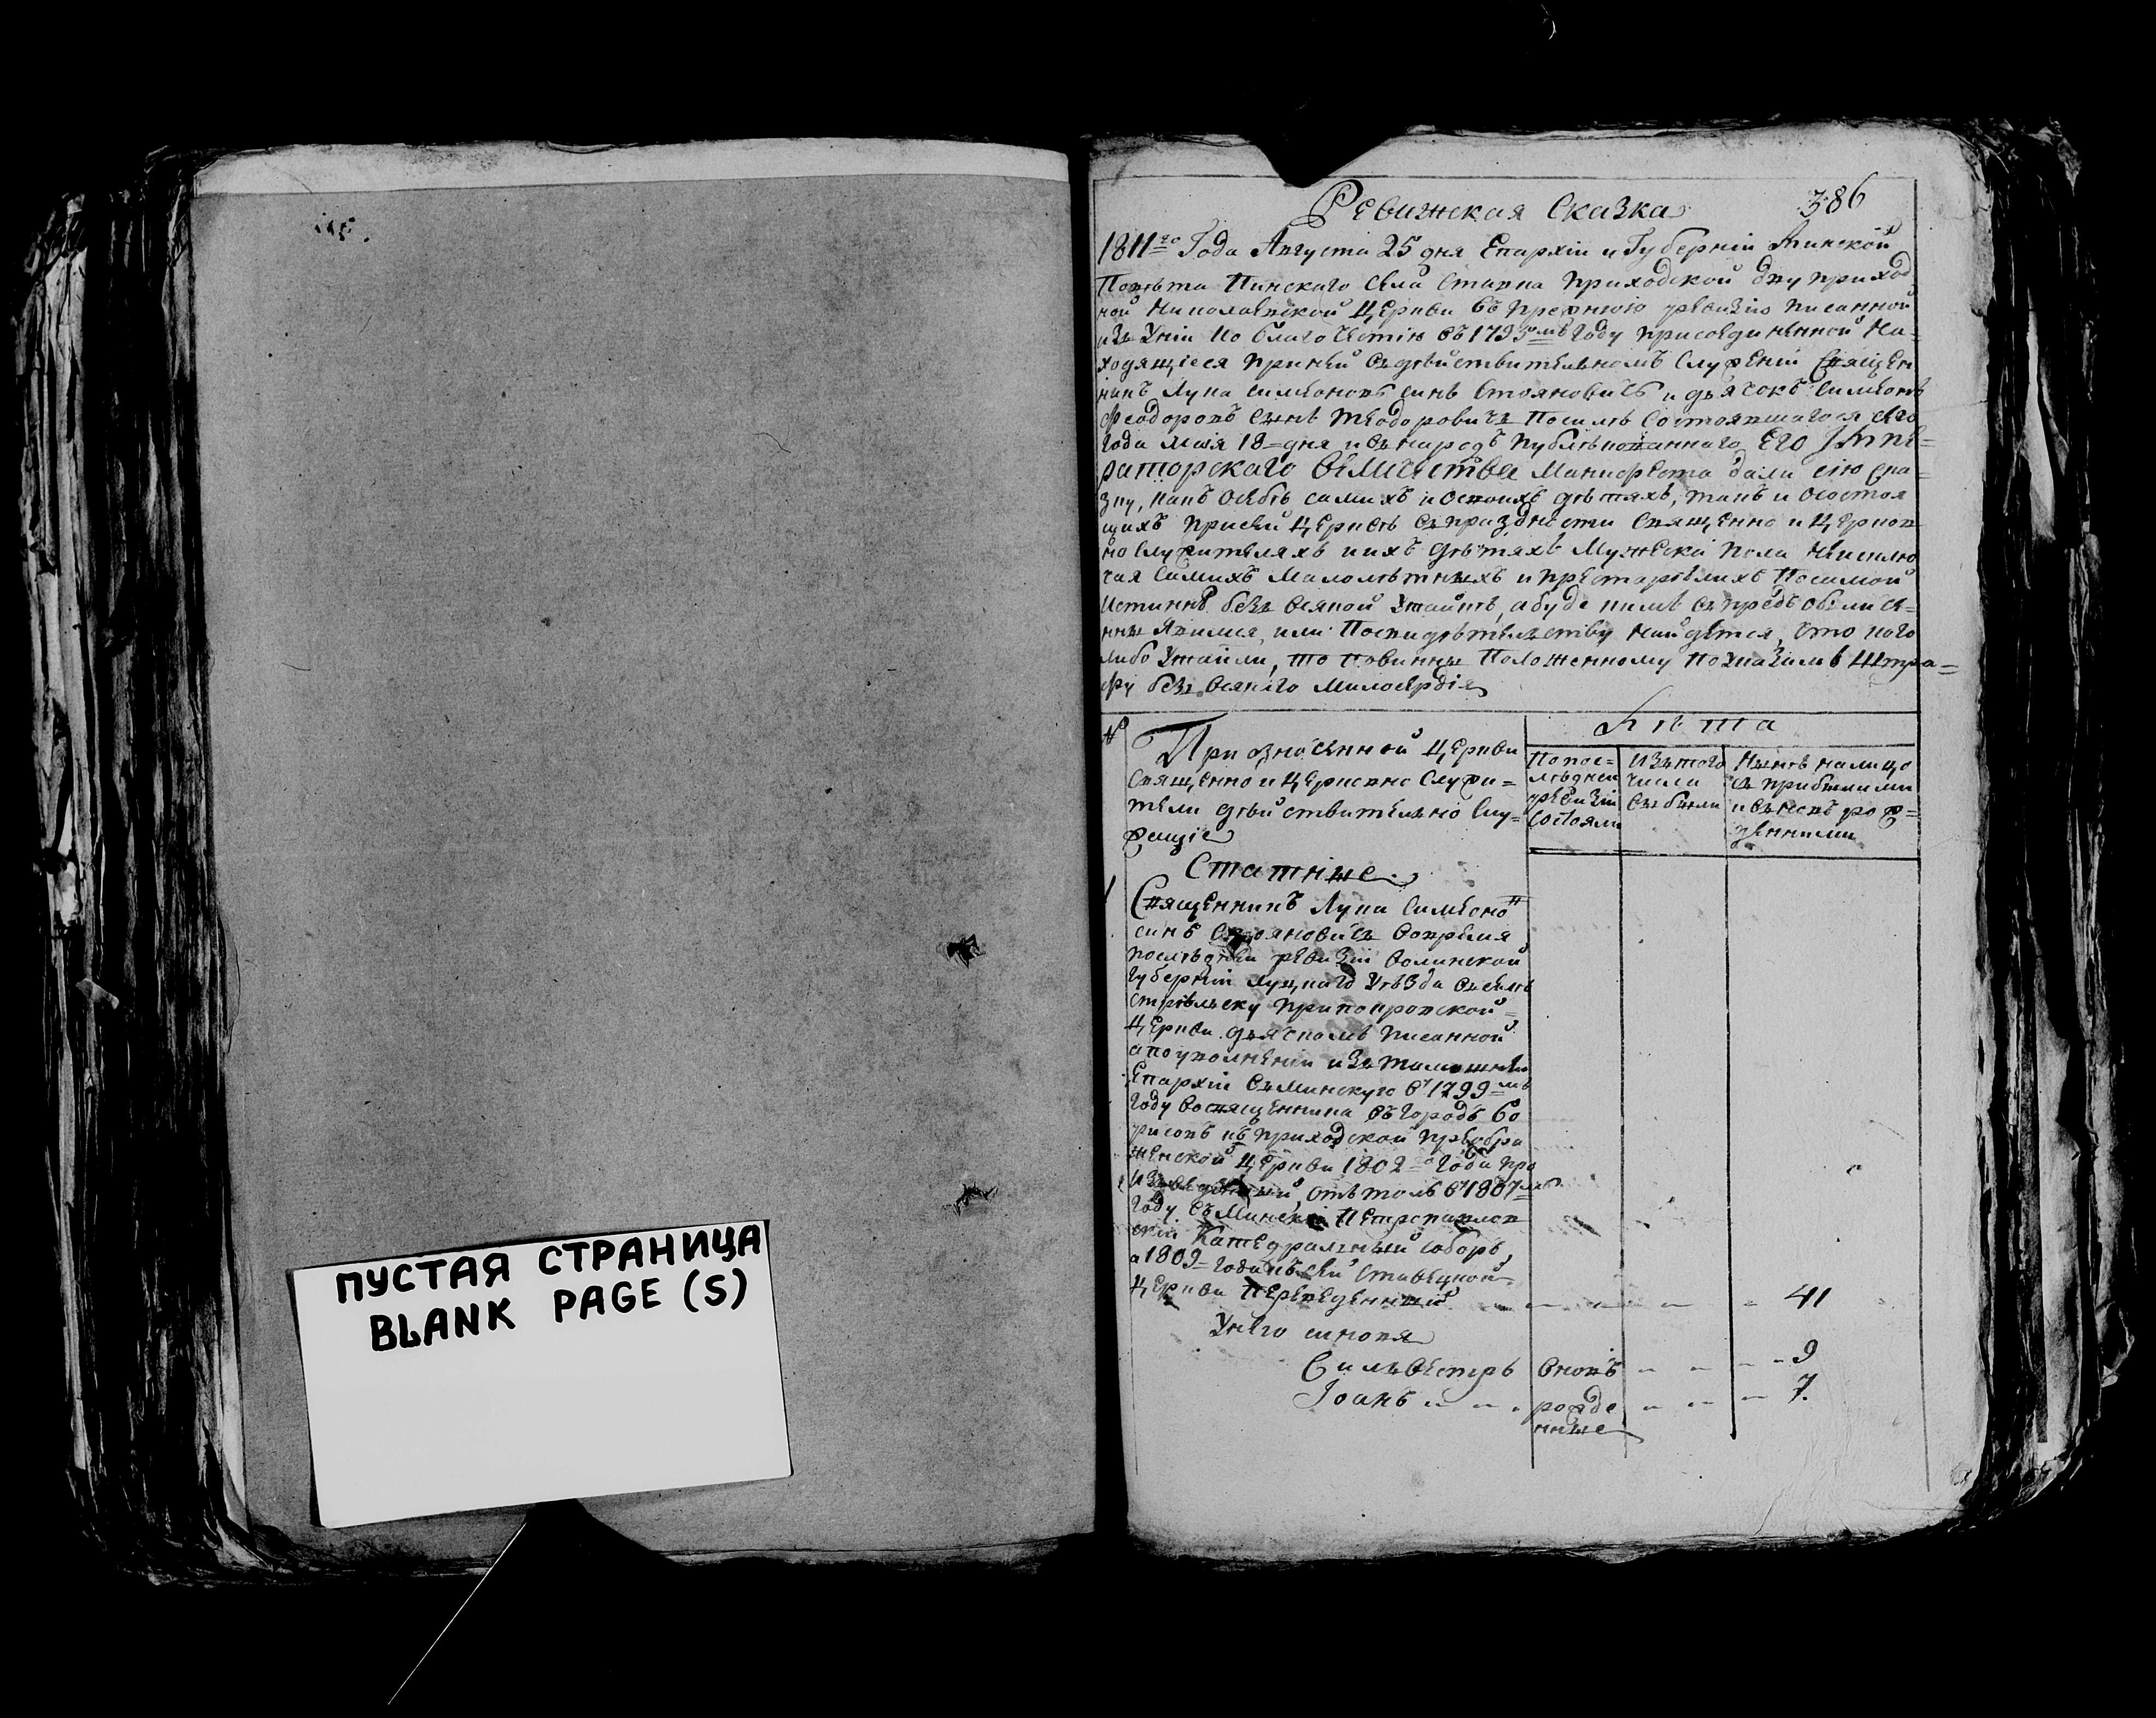 ПУСТАЯ СТРАНИЦА
BLANK PAGE (S)
Ревижская Сказка
386
1811го Года Августа 25 дня Епархіи и Губерніи Минской
Повѣта Пинскаго Села Ставка приходской двуприход
ной Николаевской Церкви въ прежнюю ревизію писанной
изъ Уніи ко благочестію въ 1795мъ Году присоединенной На-
ходящіеся при ней въ дѣйствительномъ Служеніи Священ
никъ Лука Симеоновъ синъ Стояновичъ и дьячокъ Симеонъ
Феодоровъ Сынъ Теодоровичъ После Состоявшагося сего
Года мая 18-дня и въ народъ публѣкованнаго Его Импе=
раторскаго Величества Манифеста дали сію ска=
зку, какъ о себѣ самихъ и о своихъ дѣтяхъ, такъ и о состоя
щихъ при сей Церквѣ въ праздности Священно и Церков
но Служителяхъ и ихъ дѣтяхъ Мужеска пола не исклю
чая Самихъ Малолѣтныхъ и престарѣлихъ По самой
истиннѣ безъ Всякой Утайкѣ, а буде кимъ въ предъ обличе=
нны Явимся, или По свидѣтельству найдется, что кого
либо Утаили, то повинны Положенному По Указамъ Штра=
фу безъ Всякаго Милосердія
№
При означенной Церкви
Священно и Церковно Служи=
тели дѣйствительно Слу=
жащіе
Лѣта
По пос=
лѣдней
ревизіи
Состояли
Изъ того
числа
Выбыли
Нынѣ на лицо
съ прибылими
и въ новъ рож=
денними
Статніе
1
Священникъ Лука Симеоно в
синъ Стояновичъ Во время
послѣдней ревизіи Волинской
Губерніи Луцкаго Уѣзда въ селѣ
при покровской=
Церкви дьячкомъ писанной
а по уволненіи изъ тамошней
Епархіи въ Минскую въ 1799мъ
Году во священника въ Городъ Бо
рисовъ къ приходской преобра
женской Церкви 1802го Года про
изведенный, отъ толь въ 1807мъ
Году въ Минскій Петропавлов
скій Катедральный соборъ,
а 1809= Года къ сей Ставецкой
Церкви Переведенный - - - - - 41
У него синовя
Силвестръ Вновъ - - - - 9
Іоанъ - - - рожде - - - 7.
нные